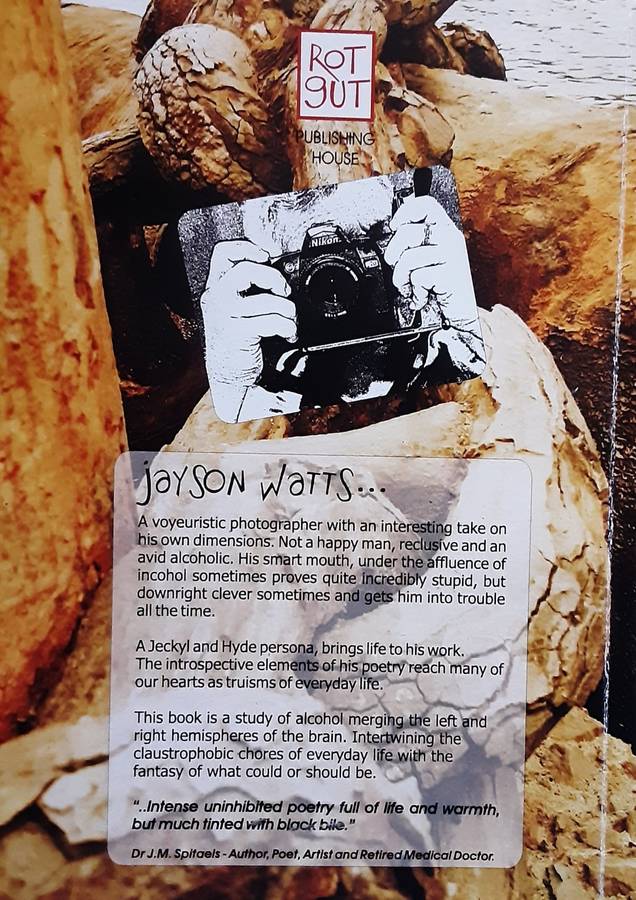 ROT
GUT
PUBLISHING
HOUSE
Nikon
jAYSON WATTS...
A voyeuristic photographer with an interesting take on
his own dimensions. Not a happy man, reclusive and an
avid alcoholic. His smart mouth, under the affluence of
incohol sometimes proves quite incredibly stupid, but
downright clever sometimes and gets him into trouble
all the time.
A Jeckyl and Hyde persona, brings life to his work.
The introspective elements of his poetry reach many of
our hearts as truisms of everyday life.
This book is a study of alcohol merging the left and
right hemispheres of the brain. Intertwining the
claustrophobic chores of everyday life with the
fantasy of what could or should be.
"..Intense uninhibited poetry full of life and warmth,
but much tinted with black bile."
Dr J.M. Spitaels - Author, Poet, Artist and Retired Medical Doctor.